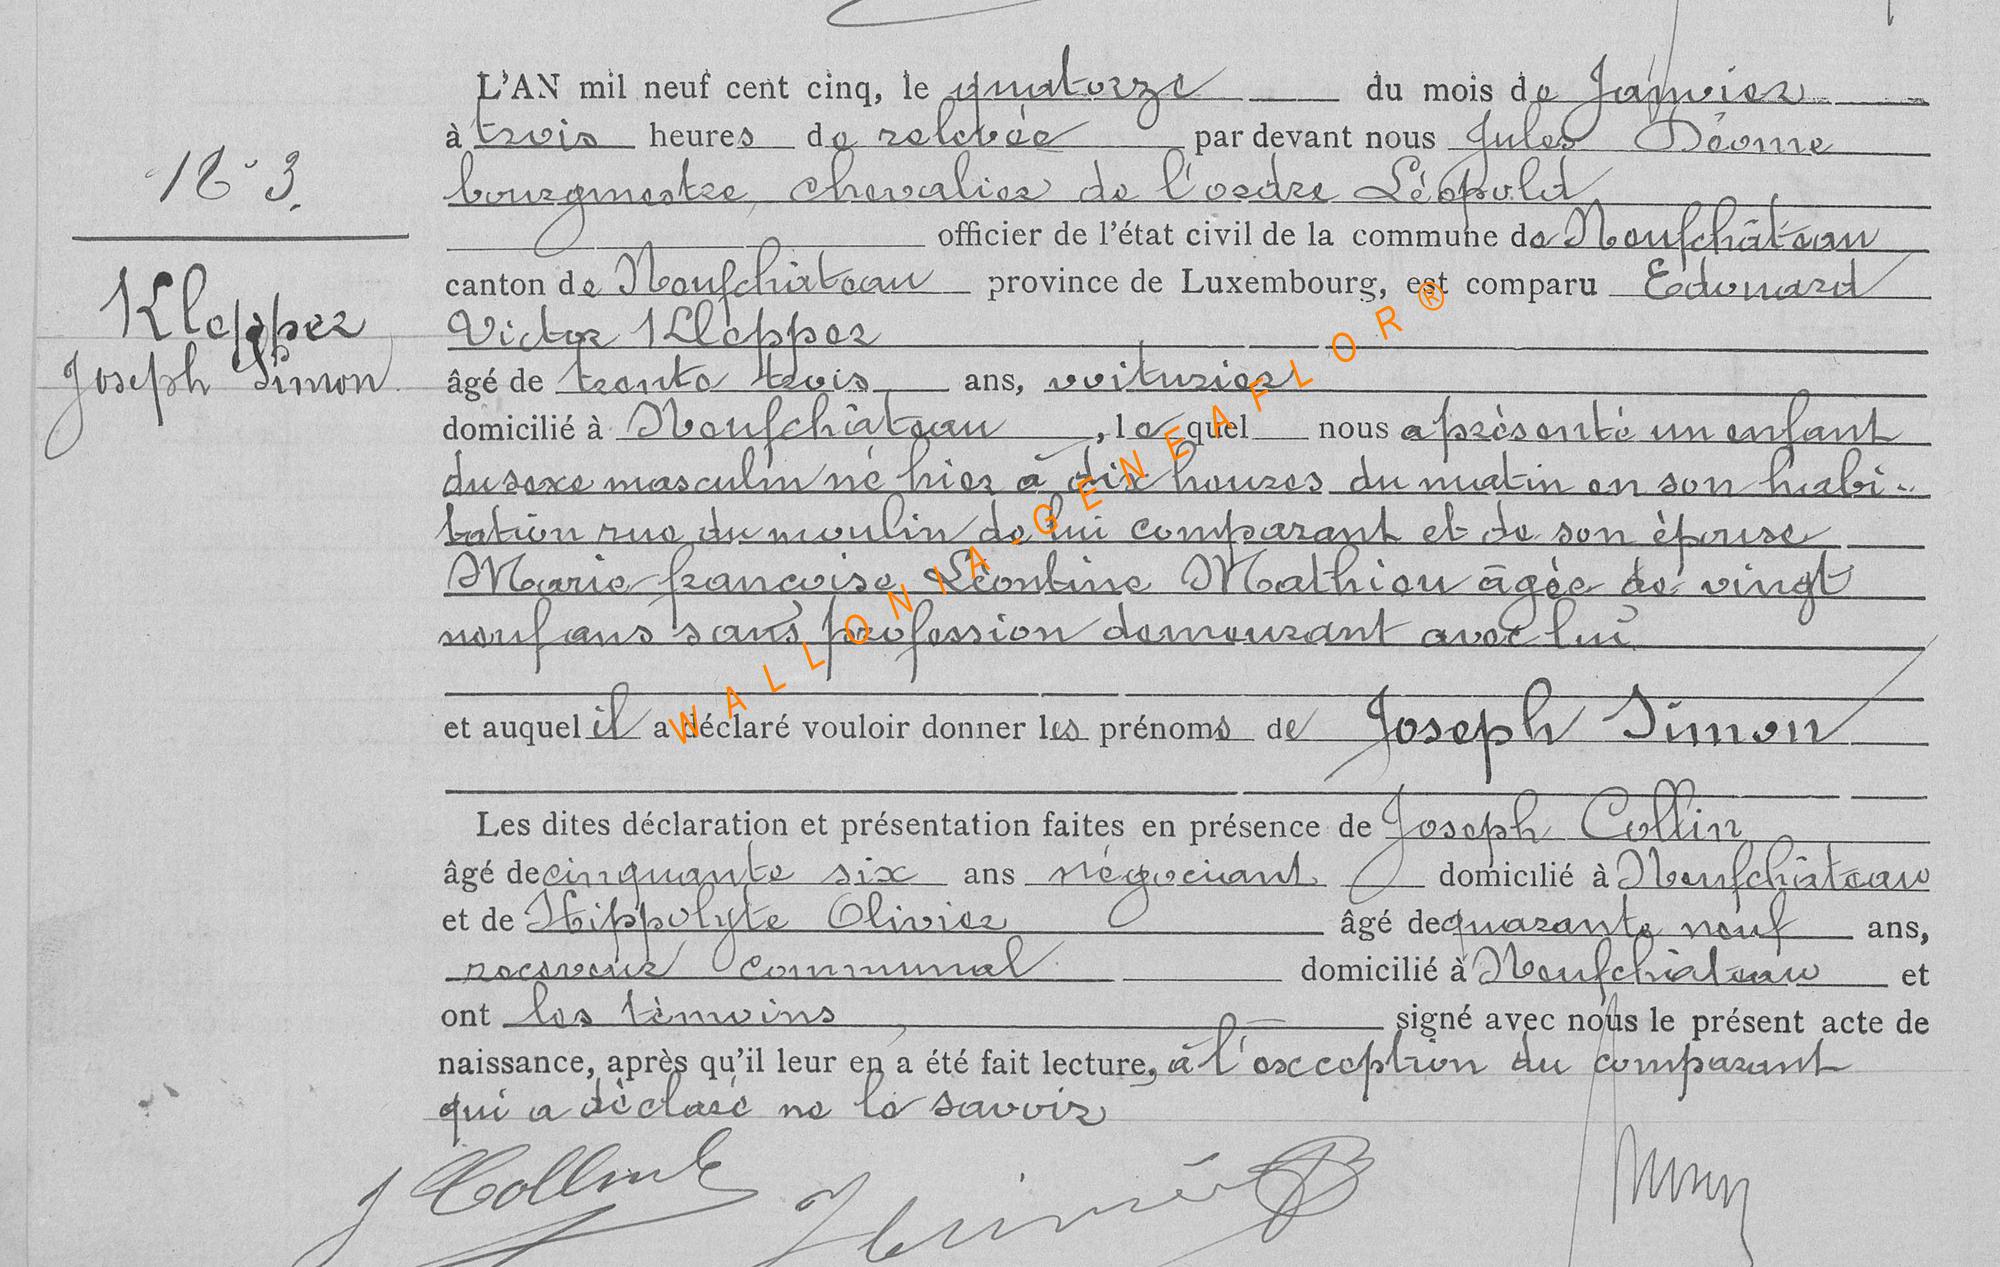 L'AN mil neuf cent cinq, le quatorze du mois de Janvier
à trois heures de relevée par devant nous Jules Déome
bourgmestre, chevalier de l'ordre Léopold
officier de l'état civil de la commune de Neufchâteau
canton de Neufchâteau province de Luxembourg, est comparu Edouard
Victor Klepper
âgé de trente trois ans, voiturier
domicilié à Neufchâteau, lequel nous a présenté un enfant
du sexe masculin né hier à dix heures du matin en son habi-
tation rue du moulin de lui comparant et de son épouse
Marie françoise Léontine Mathieu âgée de vingt
neuf ans sans profession demeurant avec lui
et auquel il a déclaré vouloir donner les prénoms de Joseph Simon
Les dites déclaration et présentation faites en présence de Joseph Collin
âgé de cinquante six ans négociant domicilié à Neufchâteau
et de Hippolyte Olivier âgé de quarante neuf ans,
receveur communal domicilié à Neufchâteau et
ont les témoins signé avec nous le présent acte de
naissance, après qu'il leur en a été fait lecture, à l'exception du comparant
qui a déclaré ne le savoir
3.
Klepper
Joseph Simon
WALLONIA-GENEAFLOR®